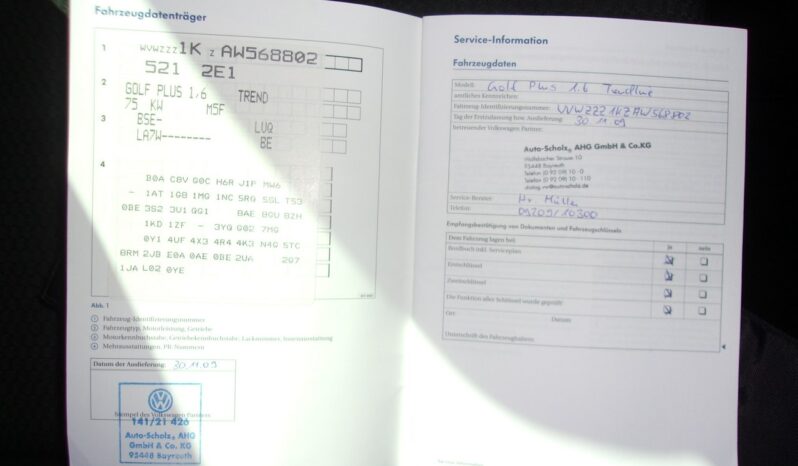 Fahrzeugdatenträger
1 WVWZZZ1K Z AW568802
521 2E1
2 GOLF PLUS 1,6 TREND
75 KW M5F
3 BSE-
LUQ
LA7W-------- BE
4
B0A C8V Q0C H6R J1P MW6
- 1AT 1G8 1MG 1NC 5RQ 5SL T53
0BE 3S2 3U1 QG1 8AE 8GU 8ZH
1KD 1ZF - 3YQ Q02 7MG
0Y1 4UF 4X3 4R4 4K3 N4G 5TC
8RM 2JB E0A 0AE 0BE 2UA 2Q7
1JA L02 0YE
Abb. 1
1 Fahrzeug-Identifizierungsnummer
2 Fahrzeugtyp, Motorleistung, Getriebe
3 Motorkennbuchstabe, Getriebekennbuchstabe, Lacknummer, Innenausstattung
4 Mehrausstattungen, PR-Nummern
Datum der Auslieferung: 30.11.09
Stempel des Volkswagen Partners
141/21 426
Auto-Scholz® AHG
GmbH & Co. KG
95448 Bayreuth
Service-Information
Fahrzeugdaten
Modell: Golf Plus 1.6 Trendline
amtliches Kennzeichen:
Fahrzeug-Identifizierungsnummer: WVWZZZ1KZAW568802
Tag der Erstzulassung bzw. Auslieferung: 30.11.09
betreuender Volkswagen Partner:
Auto-Scholz® AHG GmbH & Co.KG
95448 Bayreuth
Telefon (0 92 09) 10 - 0
Telefax (0 92 09) 10 - 110
Service-Berater: Hr. Müller
Telefon: 09209/10300
Empfangsbestätigung von Dokumenten und Fahrzeugschlüssels
Dem Fahrzeug lagen bei: ja nein
Bordbuch inkl. Serviceplan
Erstschlüssel
Zweitschlüssel
Die Funktion aller Schlüssel wurde geprüft
Ort: Datum
Unterschrift des Fahrzeughalters: